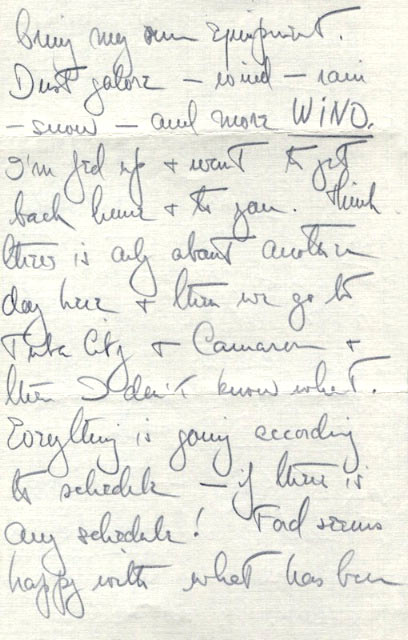 bring my own Equipment.
Dust galore – wind – rain
– snow – and more WIND.
I'm fed up & want to get
back home & to you. Think
there is only about another
day here & then we go to
Tuba City & Camaron &
then I don't know what.
Everything is going according
to schedule – if there is
any schedule! Ford seems
happy with what has been